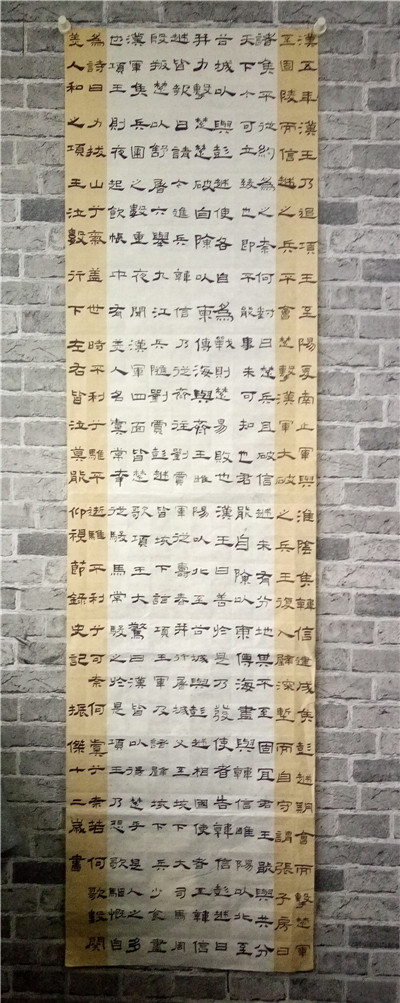 漢五年漢王乃追項王至陽夏南止軍與淮陰侯韓信建成侯彭越期會而擊楚軍
至固陵而信越之兵不會楚擊漢軍大破之兵王復入壁深塹而自守謂張子房曰
諸侯不從約為之奈何對曰楚兵且破信越未有分地其不至固宜君王能與共分
天下今可立致也即不能事未可知也君王能自陳以東傅海盡與韓信睢陽以北至
谷城以與彭越使各自為戰則楚易敗也漢王曰善於是乃發使者告韓信彭越曰
并力擊楚楚破自陳以東傅海與齊王睢陽以北至谷城與彭越相國使者至韓信
越皆報曰請今進兵韓信乃從齊往劉賈軍從壽春并行屠城父至垓下大司馬周
殷叛楚以舒屠六舉九江兵隨劉賈彭越皆會垓下詣項王項王軍壁垓下兵少食盡
漢軍及諸侯兵圍之數重夜聞漢軍四面皆楚歌項王乃大驚曰漢皆已得楚乎是何楚人之多
也項王則夜起飲帳中有美人名虞常幸從駿馬常騎之於是項王乃悲歌慷慨自
為詩曰力拔山兮氣蓋世時不利兮騅不逝騅不利兮可奈何虞兮奈若何歌數闋
美人和之項王泣數行下左右皆泣莫能仰視節錄史記振傑十二歲書